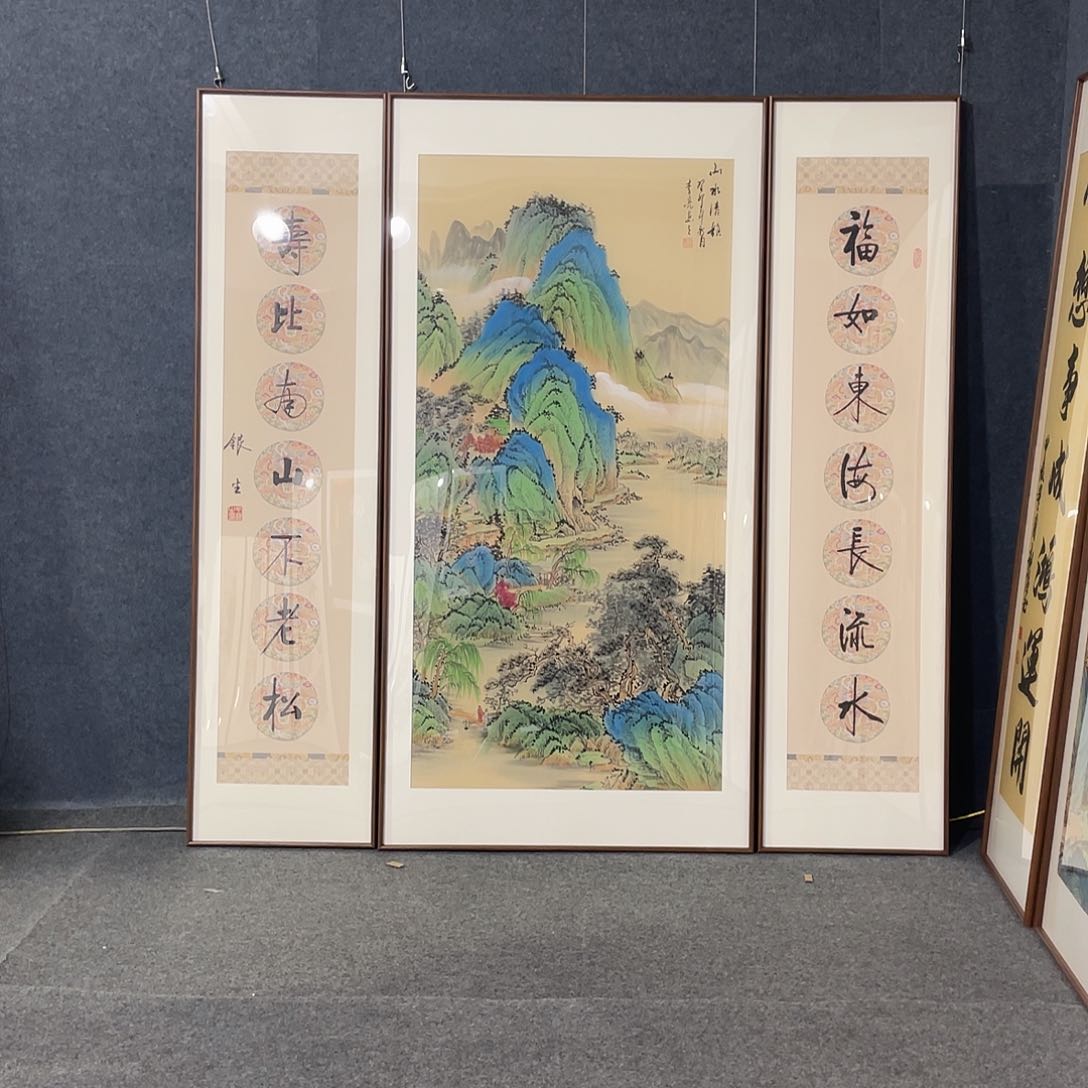 福如東海長流水
山水清韻
壽比南山不老松
銀生
事成鴻運開